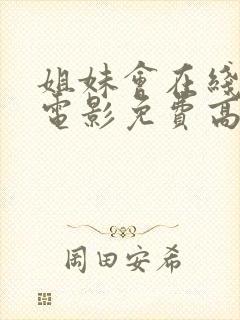 姐妹會在綫
電影免費高
岡田安希